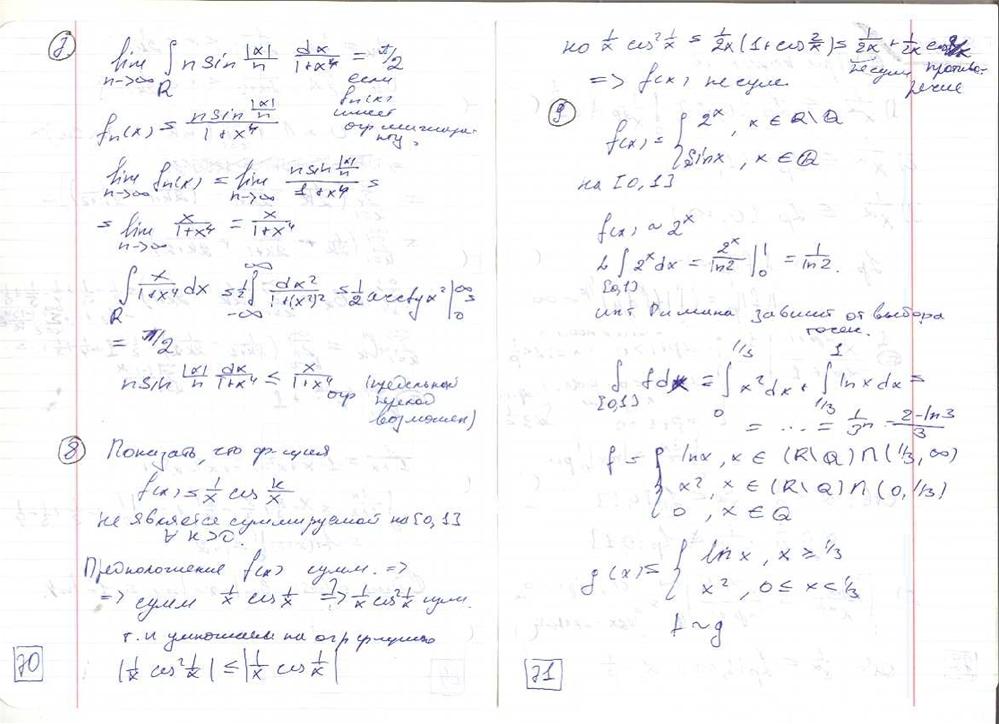 7
lim n→∞ ∫ R n sin |x|/n dx/(1+x⁴) = π/2
если fn(x) имеет
fn(x) = n sin |x|/n / (1+x⁴)
lim n→∞ fn(x) = lim n→∞ n sin |x|/n / (1+x⁴) =
= lim n→∞ x/(1+x⁴) = x/(1+x⁴)
∫ R x/(1+x⁴) dx = 1/2 ∫ -∞ ∞ dx²/(1+(x²)²) = 1/2 arctg x² | 0 ∞ =
= π/2
n sin |x|/n dx/(1+x⁴) ≤ x/(1+x⁴) огр (предельный
переход
возможен)
8 Показать, что ф-ция
f(x) = 1/x cos k/x
не является суммируемой на [0,1]
∀ k>0.
Предположение f(x) сумм. =>
=> сумм 1/x cos 1/x => 1/x cos² 1/x сумм.
т.к умножаем на огр функцию
|1/x cos² 1/x| ≤ |1/x cos 1/x|
70
но 1/x cos² 1/x = 1/2x (1+cos 2/x) = 1/2x + 1/2x cos 2/x
не сумм противо-
речие
=> f(x) не сумм.
9
f(x) = { 2ˣ, x ∈ R\Q
sin x, x ∈ Q
на [0,1]
f(x) ~ 2ˣ
L ∫ [0,1] 2ˣ dx = 2ˣ/ln2 | 0 1 = 1/ln2.
инт Римана зависит от выбора
точек.
∫ [0,1] f dx = ∫ 0 1/3 x² dx + ∫ 1/3 1 ln x dx =
= ... = 1/3⁴ - (2-ln3)/3
f = { ln x, x ∈ (R\Q)∩(1/3, ∞)
x², x ∈ (R\Q)∩(0, 1/3)
0, x ∈ Q
g(x) = { ln x, x ≥ 1/3
x², 0 ≤ x < 1/3
f ~ g
71